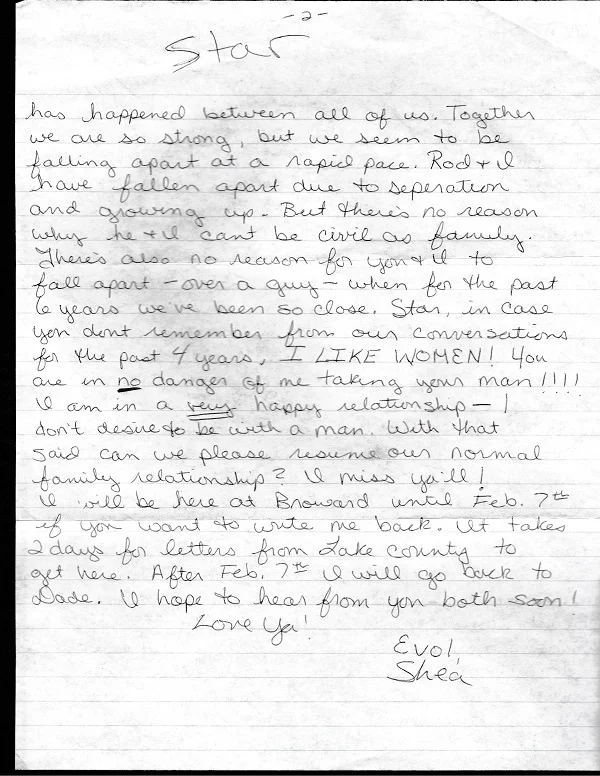 -2-
Star
has happened between all of us. Together
we are so strong, but we seem to be
falling apart at a rapid pace. Rod & I
have fallen apart due to seperation
and growing up. But there's no reason
why he & I cant be civil as family.
There's also no reason for you & I to
fall apart - over a guy - when for the past
6 years we've been so close. Star, in case
you dont remember from our conversations
for the past 4 years, I LIKE WOMEN! You
are in no danger of me taking your man!!!!
I am in a very happy relationship - I
don't desire to be with a man. With that
said can we please resume our normal
family relationship? I miss ya'll!
I will be here at Broward until Feb. 7th
if you want to write me back. It takes
2 days for letters from Lake County to
get here. After Feb. 7th I will go back to
Dade. I hope to hear from you both soon!
Love Ya!
Evol,
Shea